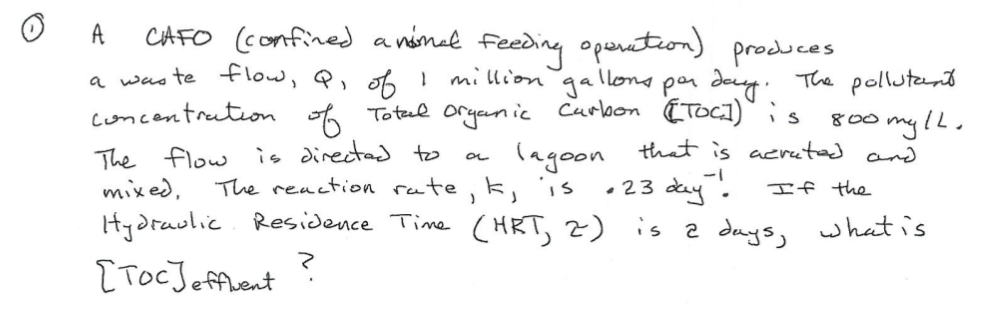 ① A CAFO (confined animal feeding operation) produces
a waste flow, Q, of 1 million gallons per day. The pollutant
concentration of Total Organic Carbon ([TOC]) is 800 mg/L.
The flow is directed to a lagoon that is aerated and
mixed. The reaction rate, k, is .23 day⁻¹. If the
Hydraulic Residence Time (HRT, τ) is 2 days, what is
[TOC]effluent ?